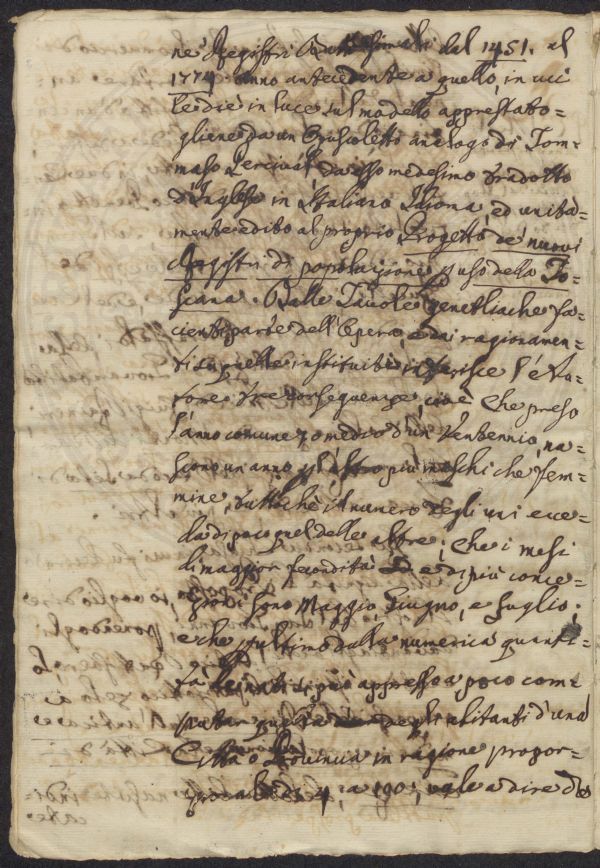 ne' Registri Battesimali dal 1451. al
1774. anno antecedente a quello, in cui
le die in luce sul modello apprestato=
gliene da un Opuscoletto analogo di Tom=
maso Percival, da esso medesimo tradotto
d'Inglese in Italiano Idioma, ed unita=
mente edito al proprio Progetto de' nuovi
Registri di popolazione p uso della To=
scana. Dalle Tavole genetliache fa=
cienti parte dell'Opera, e dai ragionamen=
ti su quelle instituiti inferisce l'Au=
tore tre conseguenze, cioè Che preso
l'anno comune p medio d'un Ventennio, na=
scono un anno p l'altro più maschi che fem=
mine, tuttochè il numero degli uni ecce=
da di poco quel delle altre; Che i mesi
di maggior fecondità e di più conce=
zioni sono Maggio, Giugno, e Luglio;
e che p ultimo dalla numerica quanti=
tà de' nati si può appresso a poco com=
putar quella degli abitanti d'una
Città o Provincia in ragione propor=
zionale di 4 a 190; vale a dire che